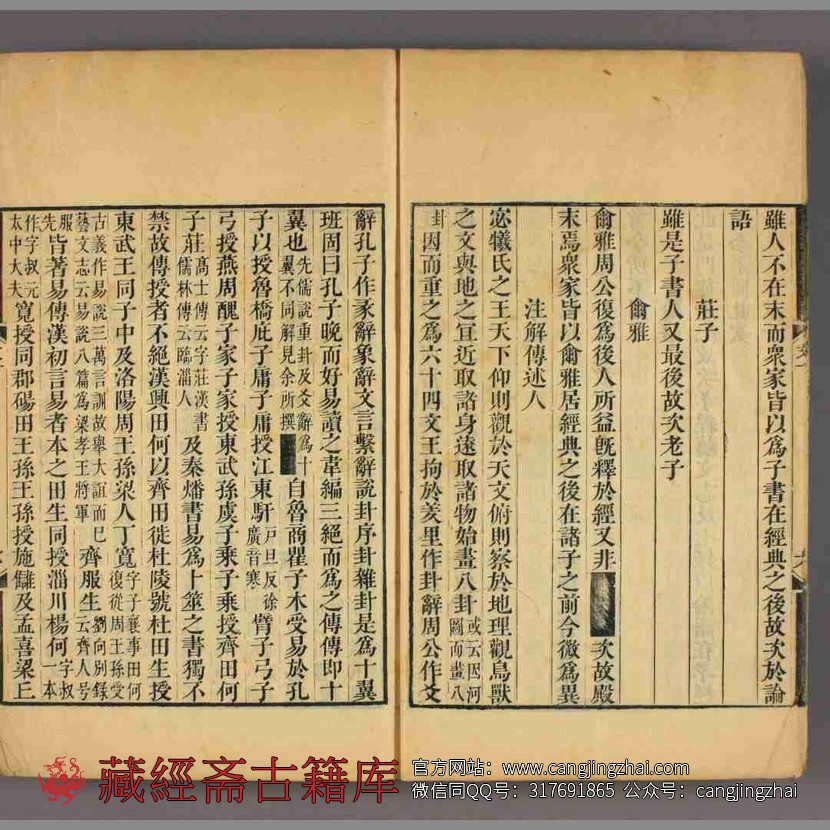 雖人不在末而衆家皆以爲子書在經典之後故次於論
語
莊子
雖是子書人又最後故次老子
爾雅
爾雅周公復爲後人所益旣釋於經又非次故殿
末焉衆家皆以爾雅居經典之後在諸子之前今微爲異
注解傳述人
宓犧氏之王天下仰則觀於天文俯則察於地理觀鳥獸
之文與地之宜近取諸身遠取諸物始畫八卦或云因河圖而畫八
卦因而重之爲六十四文王拘於羑里作卦辭周公作爻
辭孔子作彖辭象辭文言繫辭說卦序卦雜卦是爲十翼
班固曰孔子晚而好易讀之韋編三絕而爲之傳傳卽十
翼也先儒說重卦及爻辭爲十翼不同解見余所撰自魯商瞿子木受易於孔
子以授魯橋庇子庸子庸授江東馯戶旦反徐廣音寒臂子弓子
弓授燕周醜子家子家授東武孫虞子乘子乘授齊田何
子莊高士傳云字莊漢書儒林傳云臨淄人及秦燔書易爲卜筮之書獨不
禁故傳授者不絕漢興田何以齊田徙杜陵號杜田生授
東武王同子中及洛陽周王孫梁人丁寬字子襄事田何復從周王孫受
古義作易說三萬言訓故舉大誼而已藝文志云易說八篇爲梁孝王將軍齊服生劉向別錄云齊人号
服先皆著易傳漢初言易者本之田生同授淄川楊何字叔一本
作字叔元太中大夫寬授同郡碭田王孫王孫授施讎及孟喜梁丘
藏經斋古籍库
官方网站：www.cangjingzhai.com
微信同QQ号：317691865 公众号：cangjingzhai